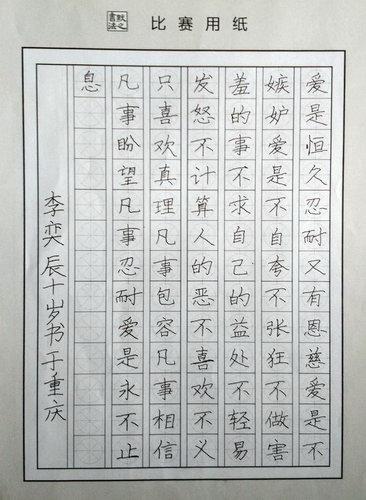 默之書法
比赛用纸
爱是恒久忍耐又有恩慈爱是不
嫉妒爱是不自夸不张狂不做害
羞的事不求自己的益处不轻易
发怒不计算人的恶不喜欢不义
只喜欢真理凡事包容凡事相信
凡事盼望凡事忍耐爱是永不止
息
李奕辰十岁书于重庆